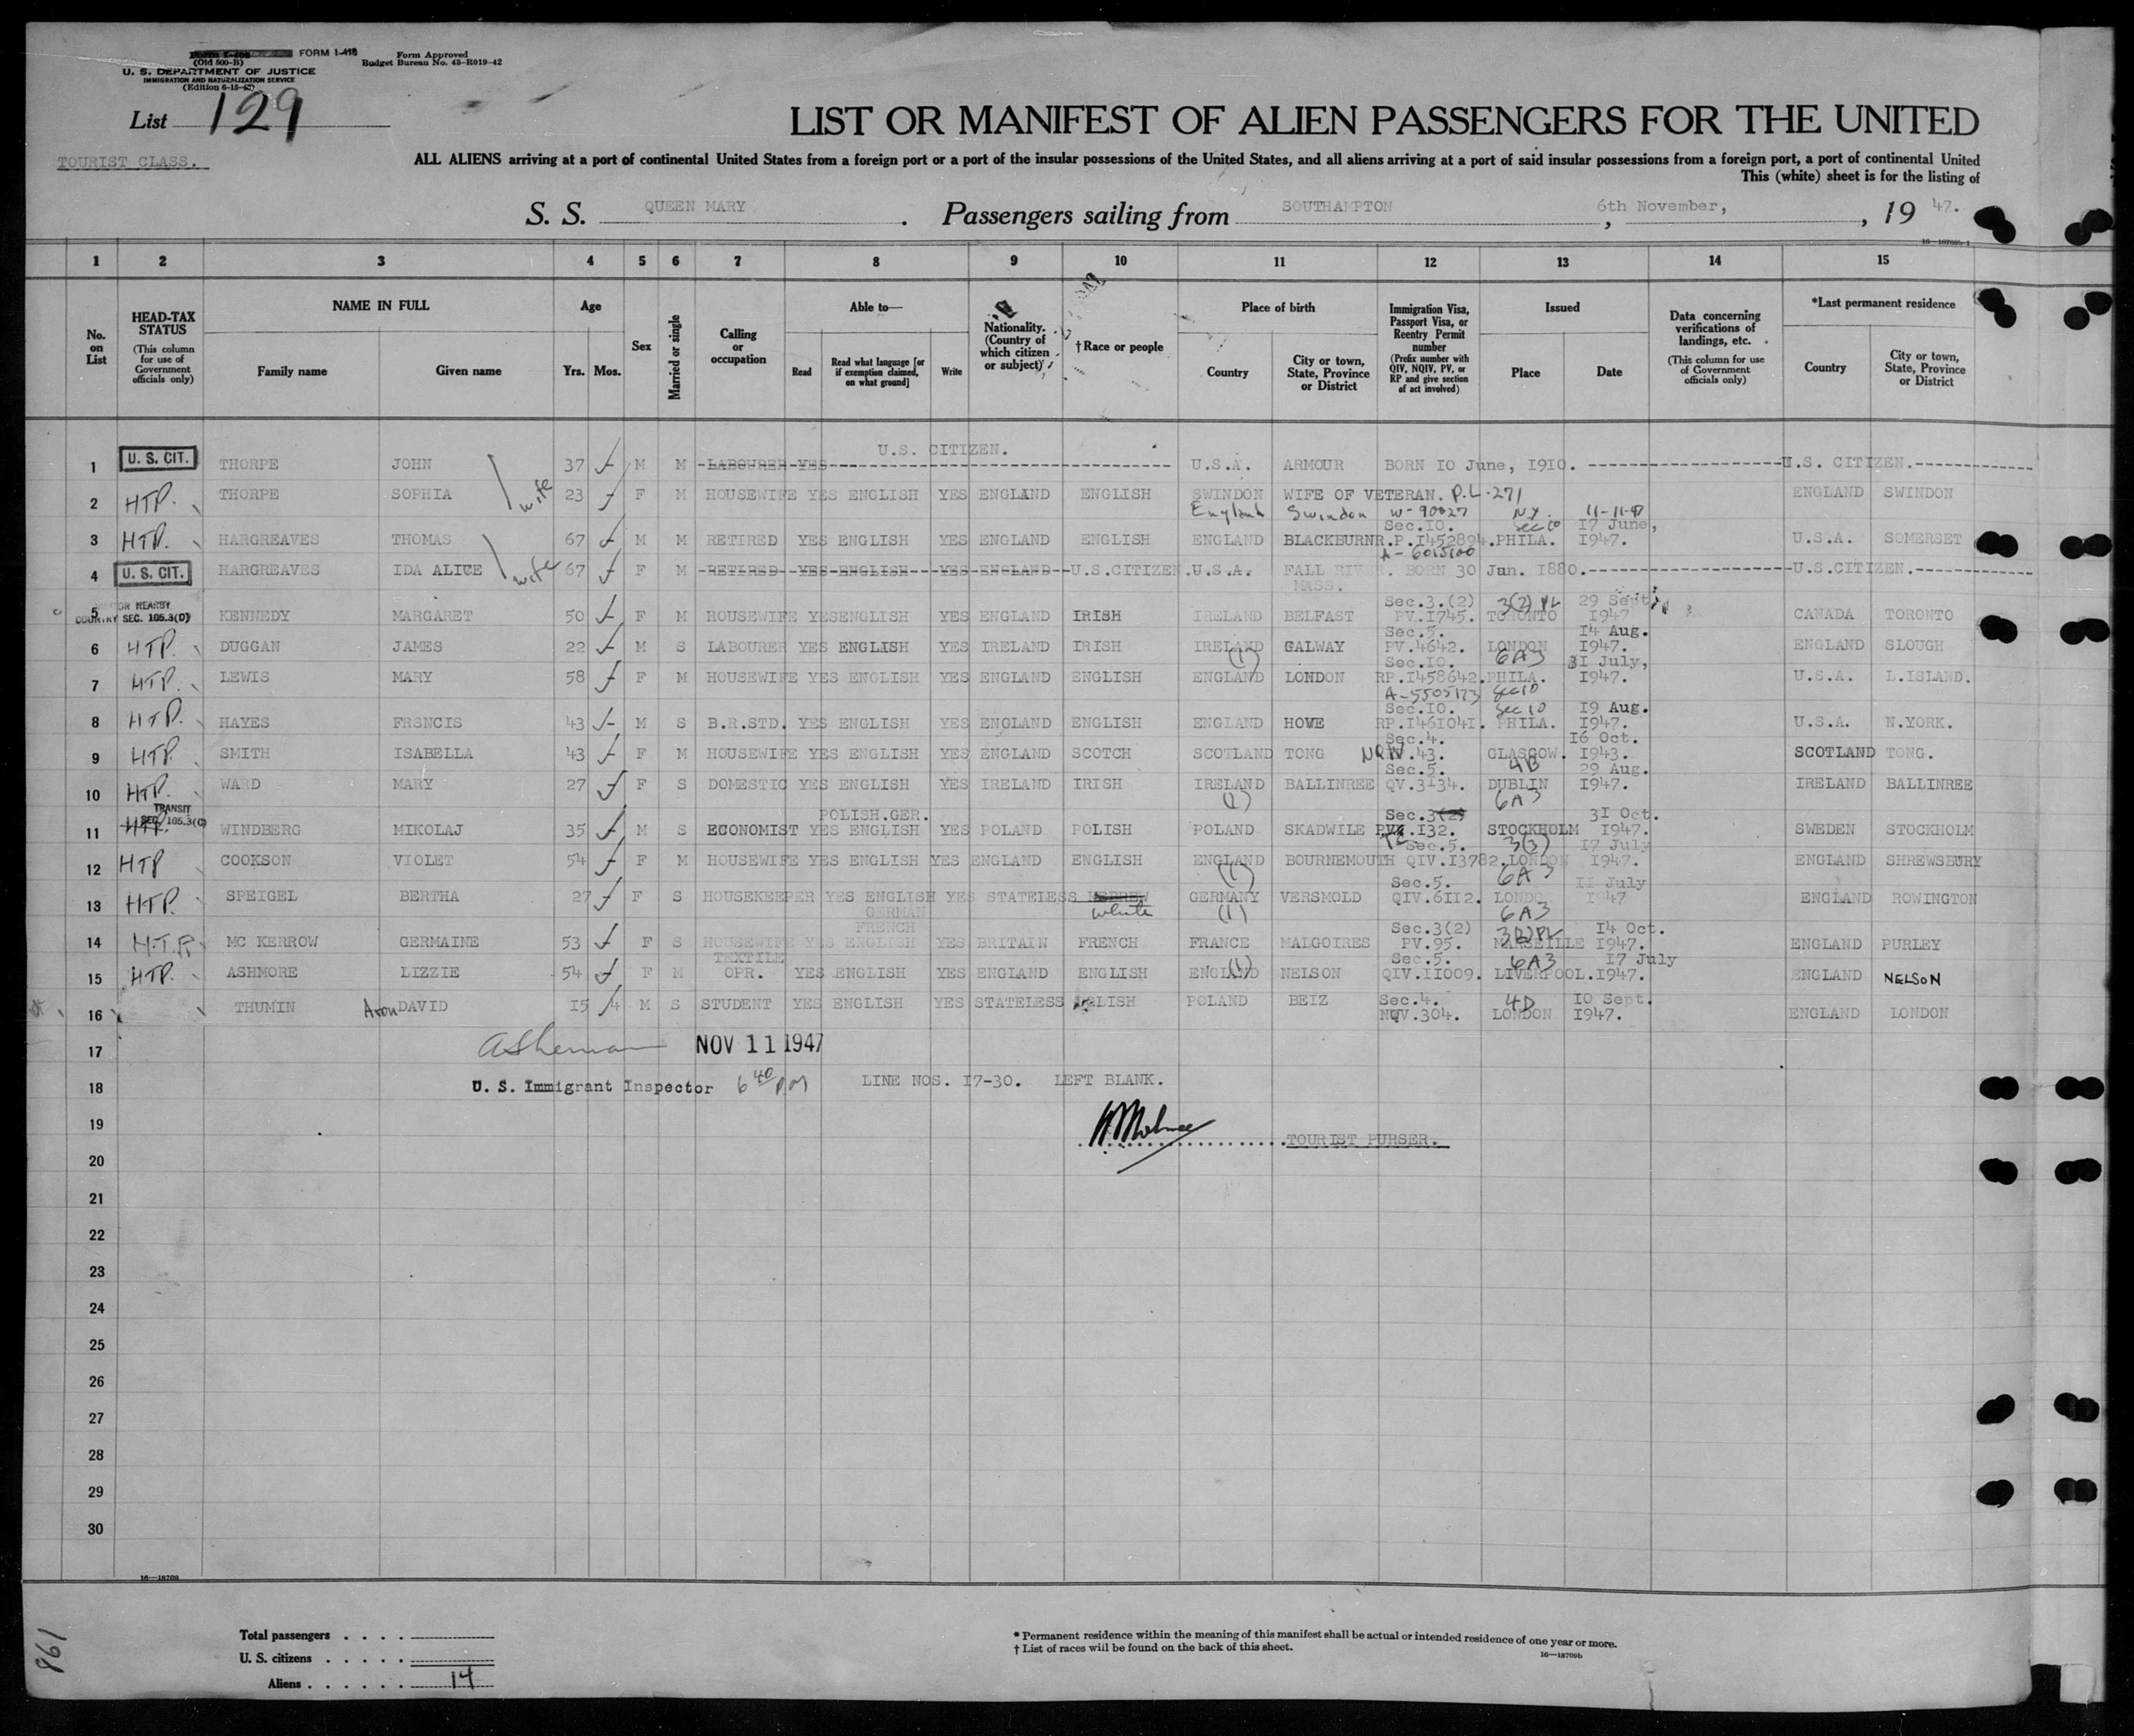 FORM I-418
(Old 500-B)
U. S. DEPARTMENT OF JUSTICE
IMMIGRATION AND NATURALIZATION SERVICE
(Edition 6-15-45)
Form Approved
Budget Bureau No. 43-R019-42
List 129
LIST OR MANIFEST OF ALIEN PASSENGERS FOR THE UNITED
TOURIST CLASS.
ALL ALIENS arriving at a port of continental United States from a foreign port or a port of the insular possessions of the United States, and all aliens arriving at a port of said insular possessions from a foreign port, a port of continental United
This (white) sheet is for the listing of
S. S. QUEEN MARY . Passengers sailing from SOUTHAMPTON , 6th November, , 19 47.
1 2 3 4 5 6 7 8 9 10 11 12 13 14 15
No. on List
HEAD-TAX STATUS (This column for use of Government officials only)
NAME IN FULL
Family name Given name
Age Yrs. Mos.
Sex
Married or single
Calling or occupation
Able to—
Read Read what language [or if exemption claimed, on what ground] Write
Nationality. (Country of which citizen or subject)
† Race or people
Place of birth
Country City or town, State, Province or District
Immigration Visa, Passport Visa, or Reentry Permit number (Prefix number with QIV, NQIV, PV, or RP and give section of act involved)
Issued
Place Date
Data concerning verifications of landings, etc. (This column for use of Government officials only)
*Last permanent residence
Country City or town, State, Province or District
U.S. CITIZEN.
1 U. S. CIT. THORPE JOHN 37 M M LABOURER YES U.S.A. ARMOUR BORN 10 June, 1910. U.S. CITIZEN.
2 HTP. THORPE SOPHIA wife 23 F M HOUSEWIFE YES ENGLISH YES ENGLAND ENGLISH SWINDON WIFE OF VETERAN. P.L.271 ENGLAND SWINDON
England Swindon W-90027 N.Y. 11-11-47
Sec.10. Sec 10 17 June,
3 HTP. HARGREAVES THOMAS 67 M M RETIRED YES ENGLISH YES ENGLAND ENGLISH ENGLAND BLACKBURN R.P.1452894. PHILA. 1947. U.S.A. SOMERSET
A-6015100
4 U. S. CIT. HARGREAVES IDA ALICE wife 67 F M RETIRED YES ENGLISH YES ENGLAND U.S.CITIZEN. U.S.A. FALL RIVER. BORN 30 Jan. 1880. U.S.CITIZEN.
MASS.
OR NEARBY Sec.3.(2) 3(2) PL 29 Sept.
5 COUNTRY SEC. 105.3(D) KENNEDY MARGARET 50 F M HOUSEWIFE YES ENGLISH YES ENGLAND IRISH IRELAND BELFAST PV.1745. TORONTO 1947 CANADA TORONTO
Sec.5. 14 Aug.
6 HTP. DUGGAN JAMES 22 M S LABOURER YES ENGLISH YES IRELAND IRISH IRELAND GALWAY PV.4642. LONDON 1947. ENGLAND SLOUGH
(1) Sec.10. 6A3 31 July,
7 HTP. LEWIS MARY 58 F M HOUSEWIFE YES ENGLISH YES ENGLAND ENGLISH ENGLAND LONDON RP.1458642. PHILA. 1947. U.S.A. L.ISLAND.
A-5505173 Sec 10
Sec.10. Sec 10 19 Aug.
8 HTP. HAYES FRSNCIS 43 M S B.R.STD. YES ENGLISH YES ENGLAND ENGLISH ENGLAND HOVE RP.1461041. PHILA. 1947. U.S.A. N.YORK.
Sec.4. 16 Oct.
9 HTP. SMITH ISABELLA 43 F M HOUSEWIFE YES ENGLISH YES ENGLAND SCOTCH SCOTLAND TONG .43. GLASGOW. 1943. SCOTLAND TONG.
Sec.5. 4B 29 Aug.
10 HTP. WARD MARY 27 F S DOMESTIC YES ENGLISH YES IRELAND IRISH IRELAND BALLINREE QV.3134. DUBLIN 1947. IRELAND BALLINREE
(1) 6A3
TRANSIT SEC. 105.3(C) POLISH.GER. Sec.3(2) 31 Oct.
11 HTP. WINDBERG MIKOLAJ 35 M S ECONOMIST YES ENGLISH YES POLAND POLISH POLAND SKADWILE .132. STOCKHOLM 1947. SWEDEN STOCKHOLM
Sec.5. 3(3) 17 July
12 HTP COOKSON VIOLET 54 F M HOUSEWIFE YES ENGLISH YES ENGLAND ENGLISH ENGLAND BOURNEMOUTH QIV.13782. LONDON 1947. ENGLAND SHREWSBURY
(1) Sec.5. 6A3 11 July
13 HTP. SPEIGEL BERTHA 27 F S HOUSEKEEPER YES ENGLISH YES STATELESS HEBREW GERMANY VERSMOLD QIV.6112. LONDON 1947 ENGLAND ROWINGTON
GERMAN white (1) 6A3
FRENCH Sec.3(2) 3(2) PL 14 Oct.
14 H.T.P. MC KERROW GERMAINE 53 F S HOUSEWIFE YES ENGLISH YES BRITAIN FRENCH FRANCE MALGOIRES PV.95. MARSEILLE 1947. ENGLAND PURLEY
TEXTILE (1) Sec.5. 6A3 17 July
15 HTP. ASHMORE LIZZIE 54 F M OPR. YES ENGLISH YES ENGLAND ENGLISH ENGLAND NELSON QIV.11009. LIVERPOOL. 1947. ENGLAND NELSON
16 THUMIN Aron DAVID 15 4 M S STUDENT YES ENGLISH YES STATELESS POLAND BEIZ Sec.4. 4D 10 Sept.
.304. LONDON 1947. ENGLAND LONDON
17 NOV 11 1947
18 U. S. Immigrant Inspector 6 40 PM LINE NOS. 17-30. LEFT BLANK.
19 TOURIST PURSER.
20
21
22
23
24
25
26
27
28
29
30
16—18709
Total passengers
U. S. citizens
Aliens 14
* Permanent residence within the meaning of this manifest shall be actual or intended residence of one year or more.
† List of races will be found on the back of this sheet.
16—18709b
861